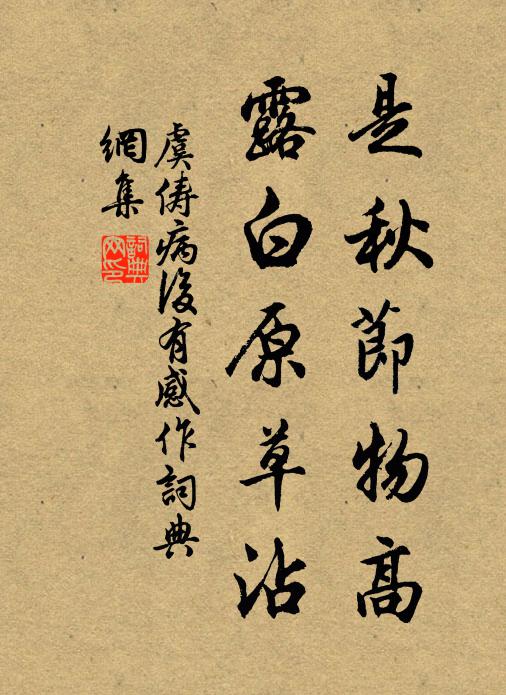 是秋節物高
露白原草沾
虞俦病後有感作詞典
網集
詞典
网印